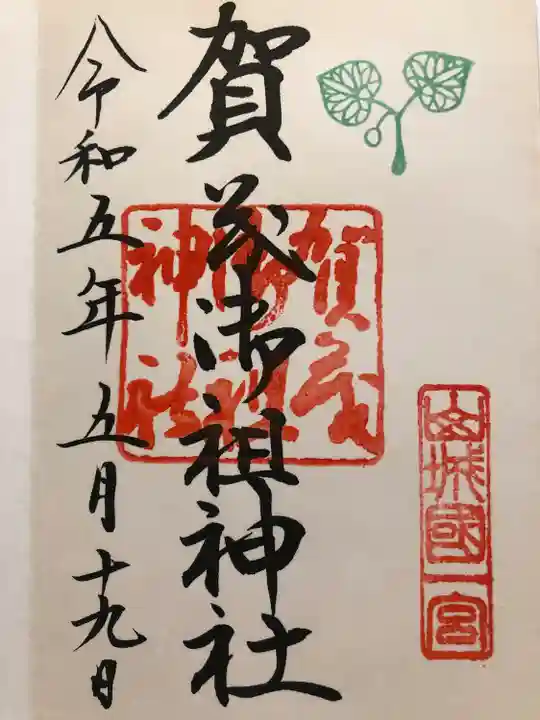 山城國一宮
賀茂御祖神社
賀茂御祖神社
令和五年五月十九日